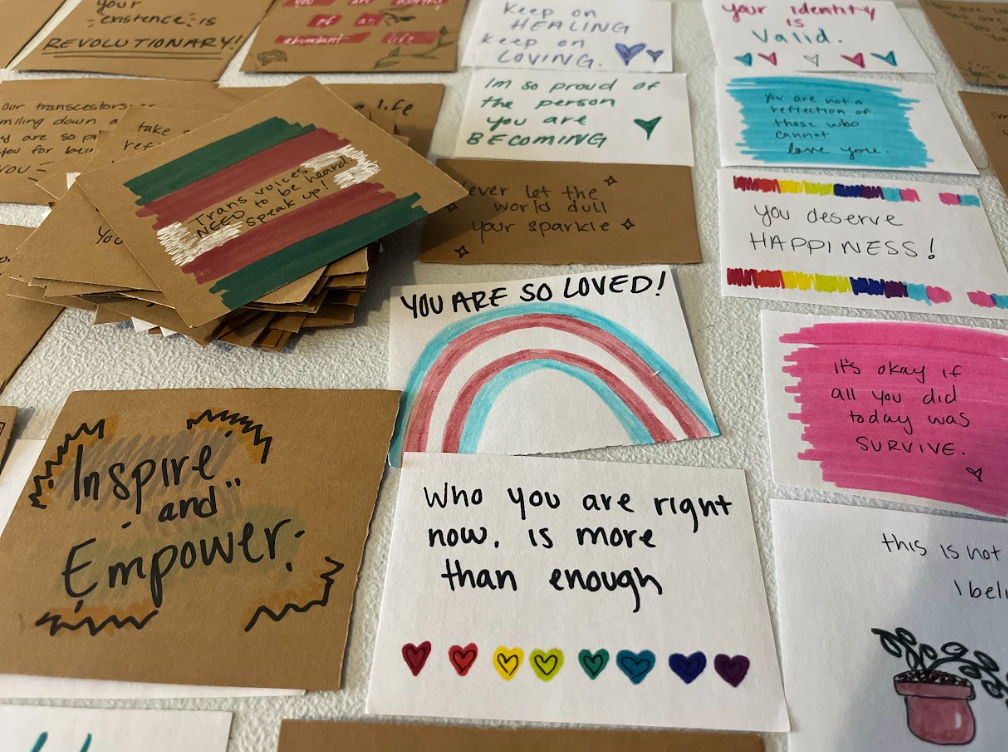 your
existence is
REVOLUTIONARY!
you are worthy
of an
abundant life
Keep on
HEALING
keep on
LOVING.
Your identity
is
Valid.
Our transcestors
miling down
y are so pr
you for bein
YOU
take
ref
life
You
Trans voices
NEED to be heard
speak up!
I'm so proud of
the person
you are
BECOMING
You are not a
reflection of
those who
cannot
love you.
ever let the
world dull
your sparkle
you deserve
HAPPINESS!
YOU ARE SO LOVED!
it's okay if
all you did
today was
SURVIVE.
Inspire
and
Empower.
Who you are right
now, is more
than enough
this is not
I beli